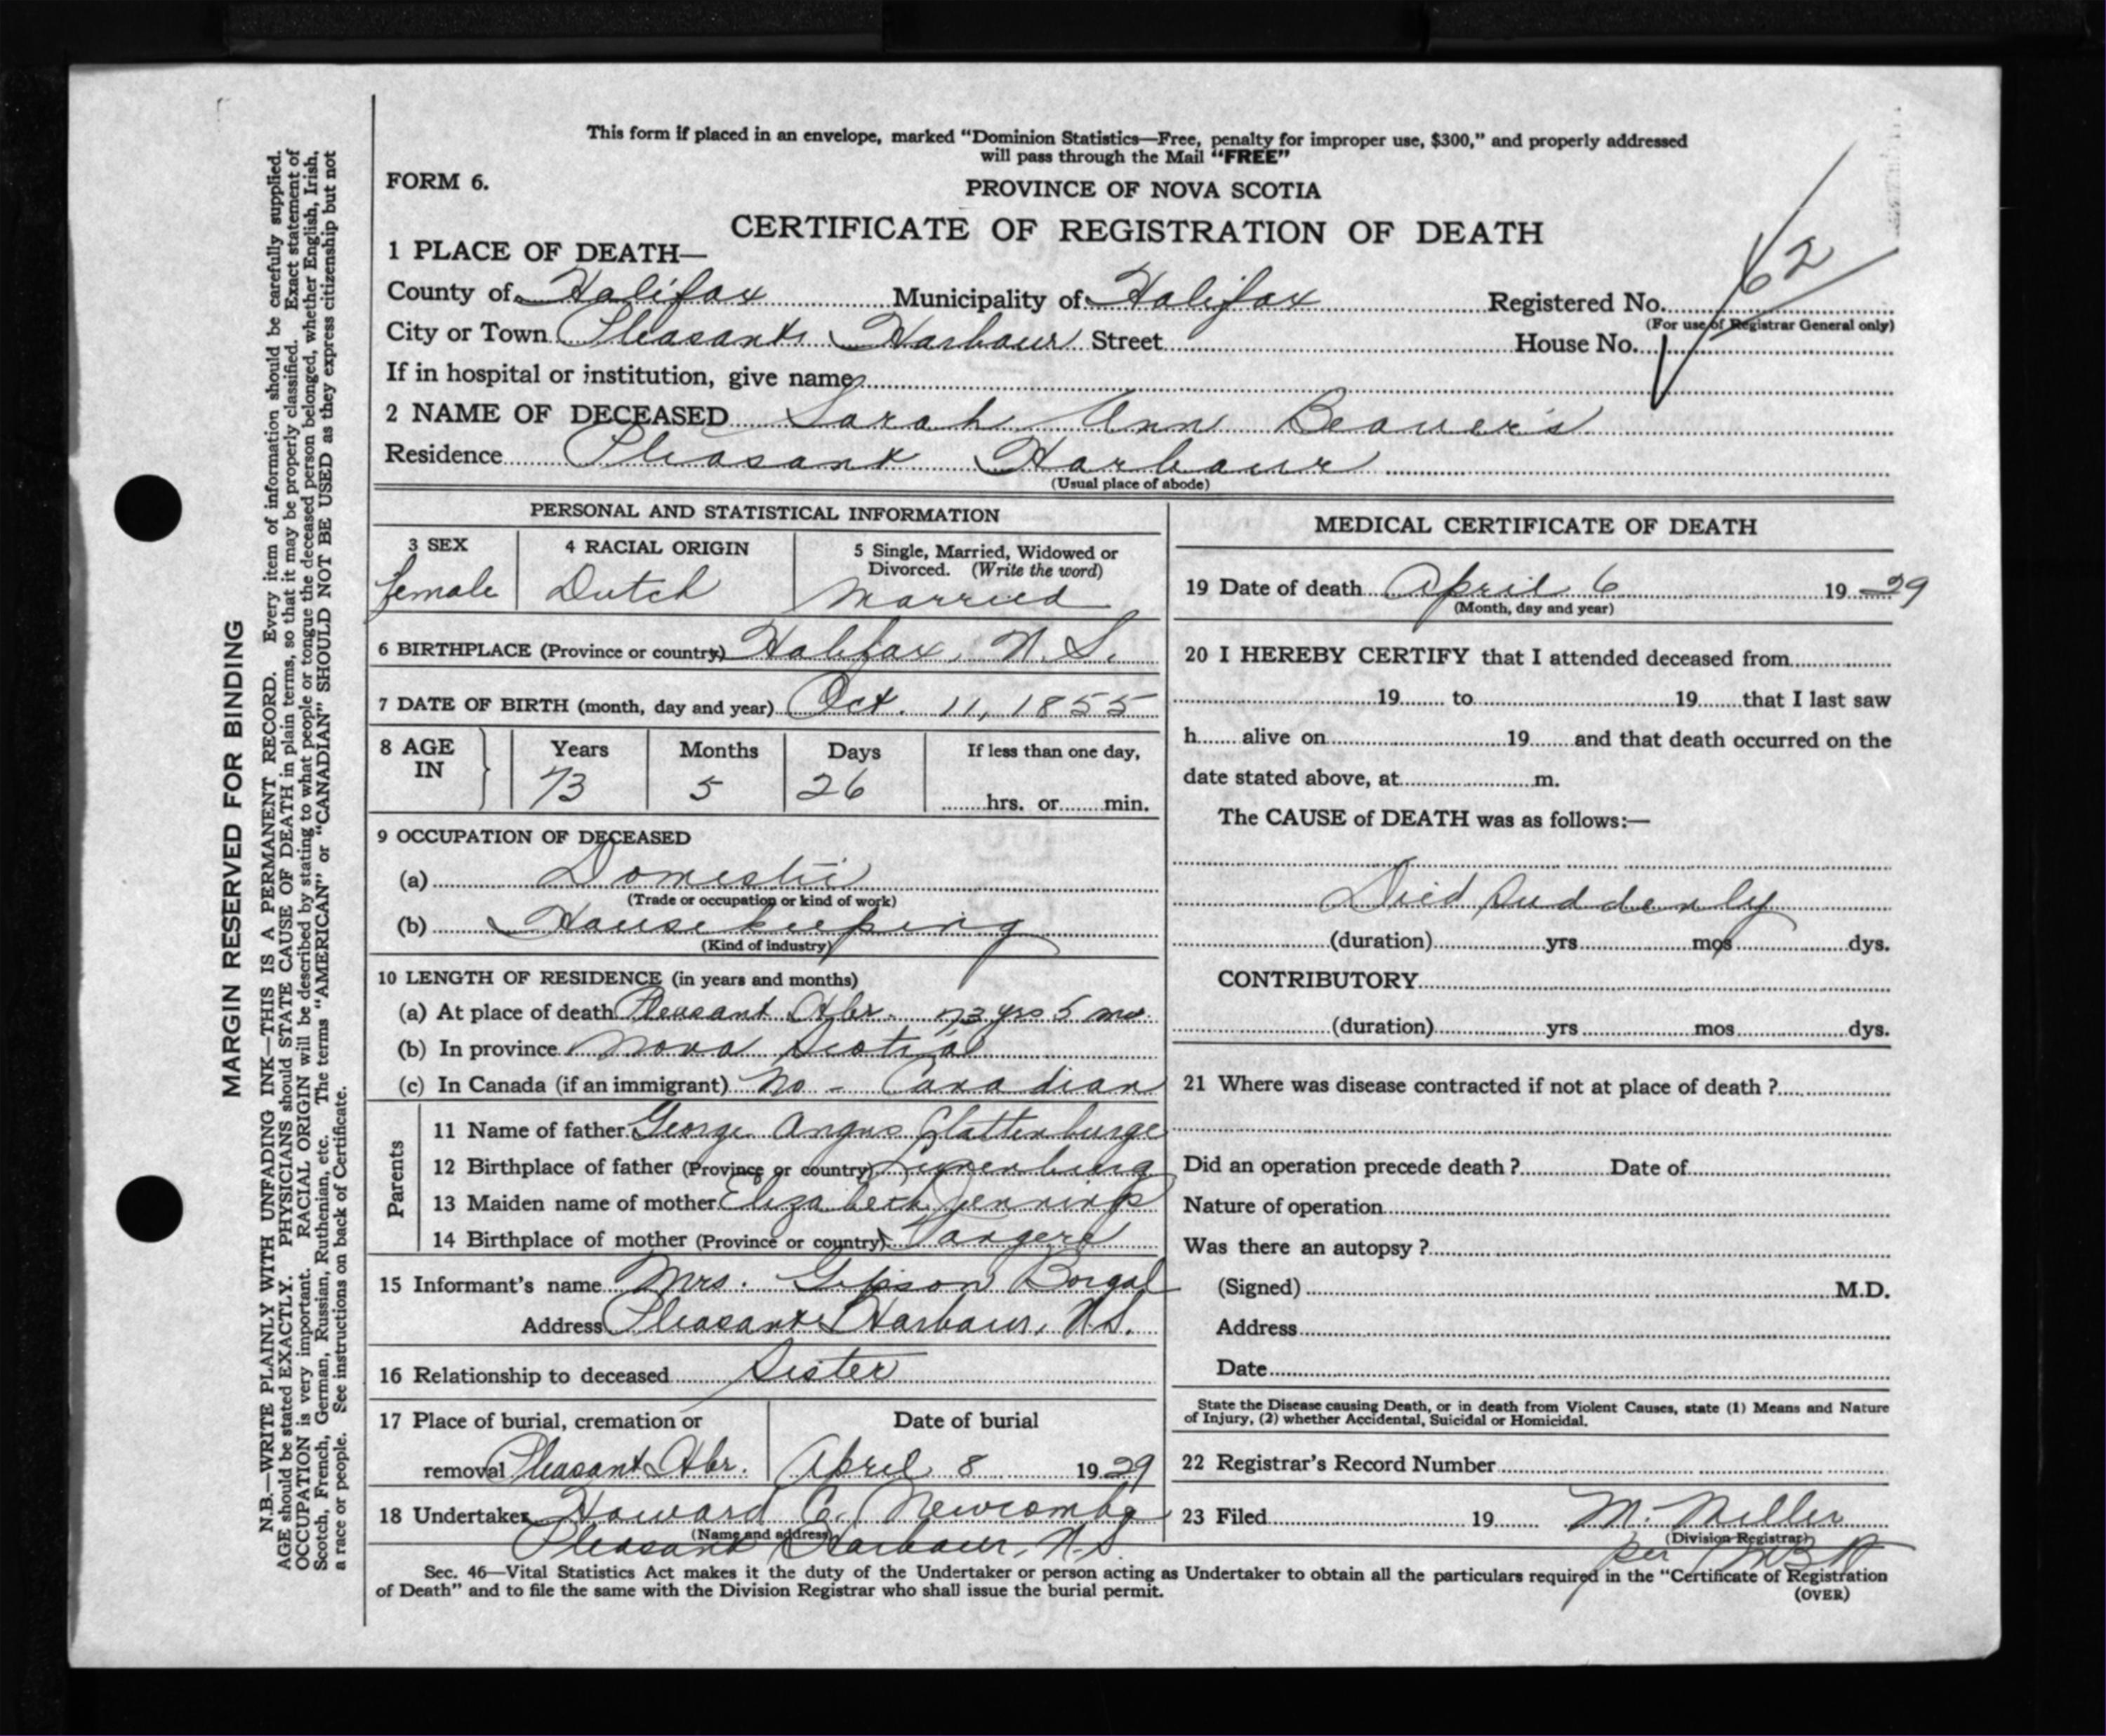 This form if placed in an envelope, marked “Dominion Statistics—Free, penalty for improper use, $300,” and properly addressed
will pass through the Mail “FREE”
FORM 6.
PROVINCE OF NOVA SCOTIA
CERTIFICATE OF REGISTRATION OF DEATH
1 PLACE OF DEATH—
County of Halifax Municipality of Halifax Registered No. 62
(For use of Registrar General only)
City or Town Pleasant Harbour Street House No.
If in hospital or institution, give name
2 NAME OF DECEASED Sarah Ann Beaver's
Residence Pleasant Harbour
(Usual place of abode)
PERSONAL AND STATISTICAL INFORMATION
3 SEX
female
4 RACIAL ORIGIN
Dutch
5 Single, Married, Widowed or
Divorced. (Write the word)
Married
6 BIRTHPLACE (Province or country) Halifax, N.S.
7 DATE OF BIRTH (month, day and year) Oct. 11, 1855
8 AGE IN
Years Months Days If less than one day,
73 5 26 hrs. or min.
9 OCCUPATION OF DECEASED
(a) Domestic
(Trade or occupation or kind of work)
(b) Housekeeping
(Kind of industry)
10 LENGTH OF RESIDENCE (in years and months)
(a) At place of death Pleasant Hbr. 73 yrs 5 mo.
(b) In province Nova Scotia
(c) In Canada (if an immigrant) No - Canadian
Parents
11 Name of father George Angus Glattenburge
12 Birthplace of father (Province or country) Lunenburg
13 Maiden name of mother Elizabeth Jennings
14 Birthplace of mother (Province or country) Tangere
15 Informant's name Mrs. Gibson Borgal
Address Pleasant Harbour, N.S.
16 Relationship to deceased Sister
17 Place of burial, cremation or Date of burial
removal Pleasant Hbr. April 8 1929
18 Undertaker Howard C. Newcombe
(Name and address)
Pleasant Harbour, N.S.
MEDICAL CERTIFICATE OF DEATH
19 Date of death April 6 1929
(Month, day and year)
20 I HEREBY CERTIFY that I attended deceased from
19 to 19 that I last saw
h alive on 19 and that death occurred on the
date stated above, at m.
The CAUSE of DEATH was as follows:—
Died suddenly
(duration) yrs mos dys.
CONTRIBUTORY
(duration) yrs mos dys.
21 Where was disease contracted if not at place of death ?
Did an operation precede death ? Date of
Nature of operation
Was there an autopsy ?
(Signed) M.D.
Address
Date
State the Disease causing Death, or in death from Violent Causes, state (1) Means and Nature
of Injury, (2) whether Accidental, Suicidal or Homicidal.
22 Registrar's Record Number
23 Filed 19 M. Miller
(Division Registrar)
per
Sec. 46—Vital Statistics Act makes it the duty of the Undertaker or person acting as Undertaker to obtain all the particulars required in the “Certificate of Registration
of Death” and to file the same with the Division Registrar who shall issue the burial permit.
(OVER)
MARGIN RESERVED FOR BINDING
N.B.—WRITE PLAINLY WITH UNFADING INK—THIS IS A PERMANENT RECORD. Every item of information should be carefully supplied.
AGE should be stated EXACTLY. PHYSICIANS should STATE CAUSE OF DEATH in plain terms, so that it may be properly classified. Exact statement of
OCCUPATION is very important. RACIAL ORIGIN will be described by stating to what people or tongue the deceased person belonged, whether English, Irish,
Scotch, French, German, Russian, Ruthenian, etc. The terms “AMERICAN” or “CANADIAN” SHOULD NOT BE USED as they express citizenship but not
a race or people. See instructions on back of Certificate.